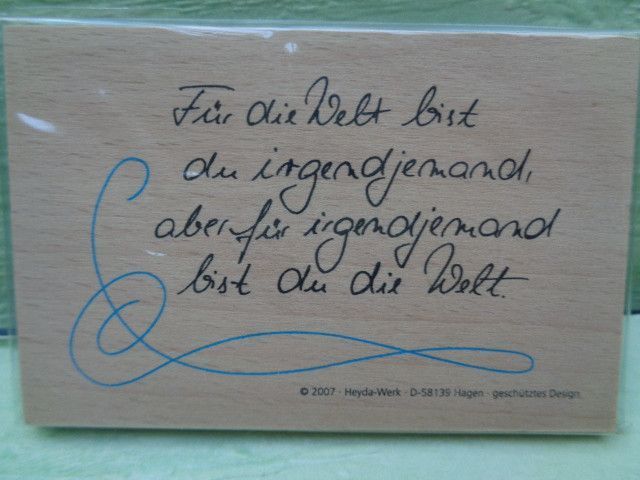 Für die Welt bist
du irgendjemand,
aber für irgendjemand
bist du die Welt.
© 2007 · Heyda-Werk · D-58139 Hagen · geschütztes Design.